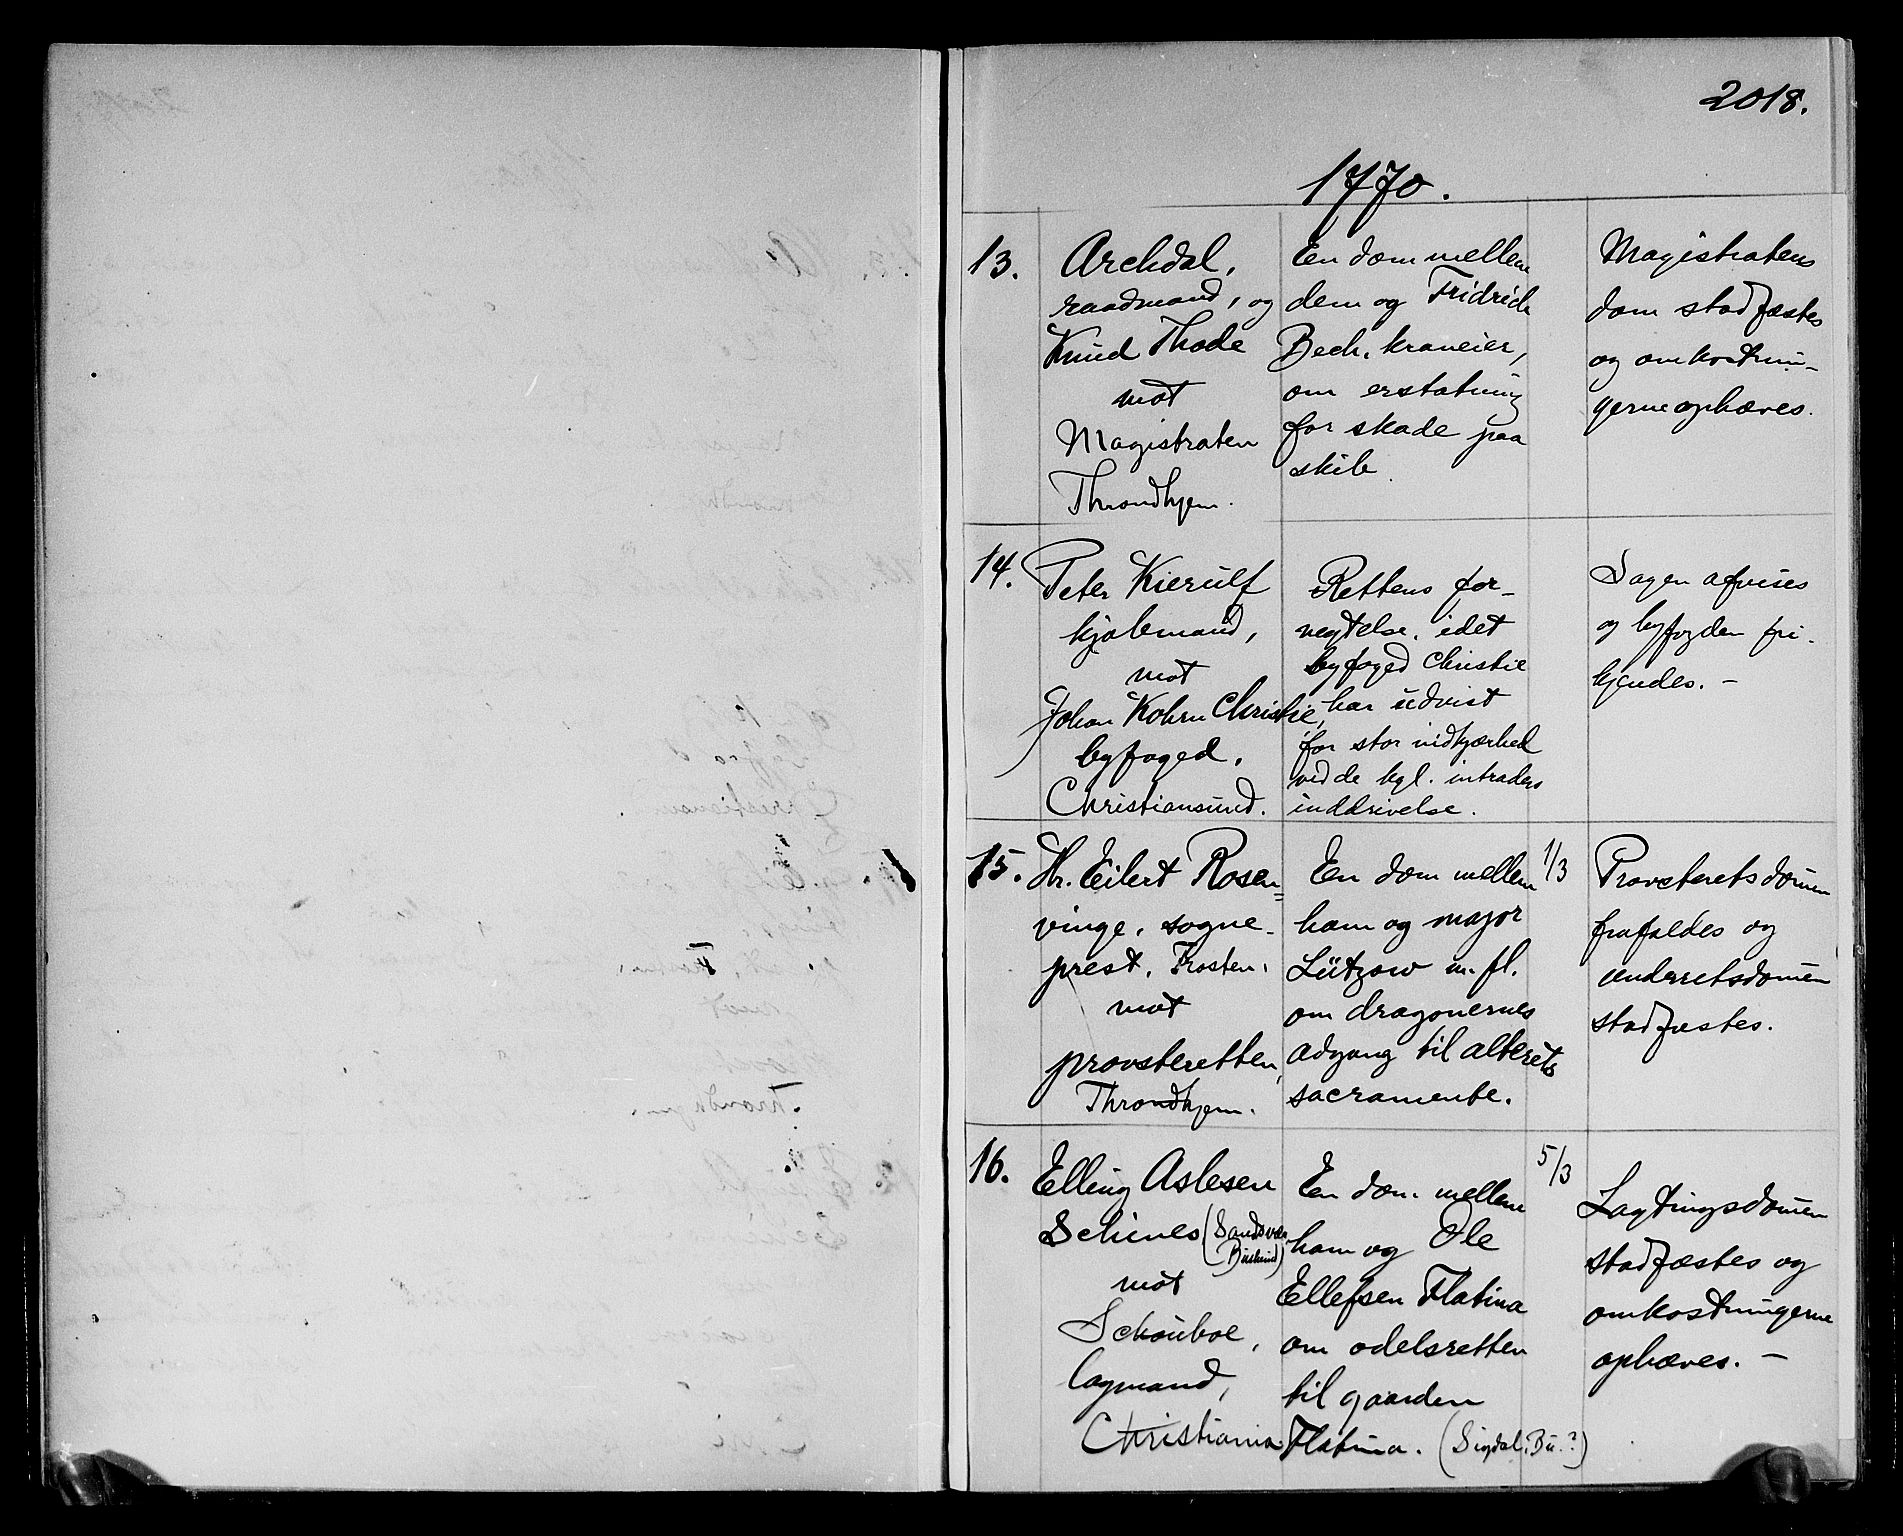 2018.
1770.
13.
Archdal,
raadmand, og
Knud Thode
mot
Magistraten
Throndhjem.
En dom mellem
dem og Fridrich
Bech, kraneier,
om erstatning
for skade paa
skib.
Magistratens
dom stadfæstes
og omkostnin-
gerne ophæves.
14.
Peter Kierulf
kjøbmand,
mot
Johan Kohrn Christie,
byfoged,
Christiansund.
Rettens for-
negtelse, idet
byfoged Christie
har udvist
for stor nidkjærhed
ved de kgl. intraders
inddrivelse.
Sagen afvises
og byfogden fri-
kjendes. -
15.
Hr. Eilert Rosen=
vinge, sogne-
prest, Frosten,
mot
provsteretten,
Throndhjem.
En dom mellem
ham og major
Lützow m. fl.
om dragonernes
adgang til alterets
sacramente.
1/3
Provsteretsdommen
frafaldes og
underretsdommen
stadfæstes.
16.
Elling Aslesen
Schines (Sandsvær
Buskerud)
mot
Schouboe,
lagmand,
Christiania.
En dom mellem
ham og Ole
Ellefsen Flatina
om odelsretten
til gaarden
Flatina. (Sigdal, Bu.?)
5/3
Lagtingsdommen
stadfæstes og
omkostningerne
ophæves. -